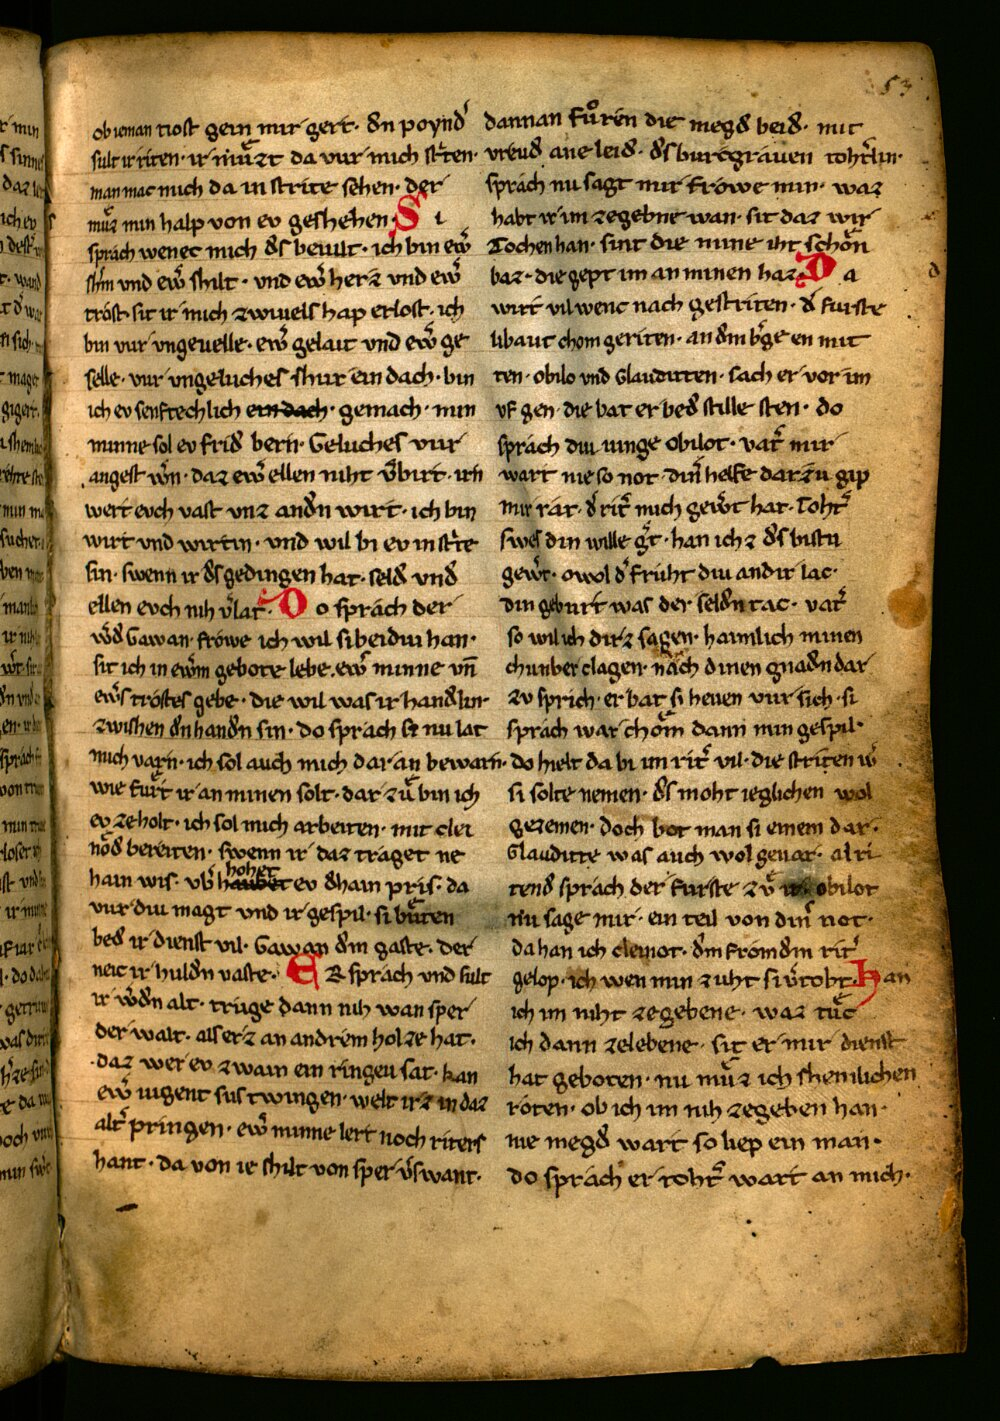 53
ob ieman tiost gein mir gert · dn poynd͛
sult ir riten · ir muͤzt da vur mich st͛iten ·
man mac mich da in strite sehen · der
muͤz min halp von ev geshehen · Si
sprach wenec mich d͛s bevilt · ich bin ew͛
sh͛m und ew͛ shilt · vnd ew͛ herz vnd ew͛
trost · sit ir mich zwiuels hap erlost · ich
bin vur vngeuelle · ew͛ gelait vnd ew͛ ge
selle · vur vngeluches shur ein dach · bin
ich ev senftechlich ein dach · gemach · min
minne sol ev frid͛ bern · Geluches vur
angest w͛n · daz ew͛ ellen niht v͛birt · irn
wert evch vast vnz and͛n wirt · ich bin
wirt vnd wirtin · vnd wil bi ev in st͛ite
sin · swenn ir d͛s gedingen hat · seld͛ vnd
ellen evch nih v͛lat · Do sprach der
w͛d͛ Gawan · frowe ich wil si beidiu han ·
sit ich in ew͛m gebote lebe · ew͛ minne vn̄
ew͛s trostes gebe · die wil was ir hand͛lin ·
zwishen d͛n hand͛n sin · do sprach si nu lat
mich varn · ich sol auch mich dar an bewarn ·
wie fuͤrt ir an minen solt · dar zuͤ bin ich
ev ze holt · ich sol mich arbeiten · mit clei
nod͛ bereiten · swenn ir daz traget ne
hain wis · vb͛ haubet hohet ev d͛hain pris · da
vur diu magt vnd ir gespil · si buͤten
bed͛ ir dienst vil · Gawan d͛m gaste · der
neic ir huld͛n vaste · ER sprach vnd sult
ir w͛d͛n alt · truge dann nih wan sper
der walt · als erz an andrem holze hat ·
daz wer ev zwain ein ringeu sat · kan
ew͛ iugent sus twingen · welt irz in daz
alt͛ pringen · ew͛ minne lert noch riters
hant · da von ie shilt von sper v͛swant ·
dannan fuͦren die megd͛ beid͛ · mit
vreud͛ ane leid͛ · d͛s burcgrauen toht͛lin ·
sprach nu sagt mir frowe min · waz
habt ir im zegebne wan · sit daz wir
Tochen han · sint die mine iht schoͤn
baz · die gept im an minen haz · Da
wirt vil wenc nach gestriten · d͛ furste
libaut chom geriten · an d͛m b͛ge en mit
ten · obilo vnd Glauditten · sach er vor im
vf gen · die bat er bed͛ stille sten · do
sprach diu iunge obilot · vat͛ mir
wart nie so not · din͛ helfe dar zu gip
mir rat · d͛ rit͛ mich gew͛t hat · Toht͛
swes din wille g͛t · han ichz d͛s bistu
gew͛t · owol d͛ fruht diu an dir lac ·
din geburt was der seld͛n tac · vat͛
so wil ich dirz sagen · haimlich minen
chunber clagen · nach dinen gnad͛n dar
zv sprich · er bat si heven vur sich · si
sprach war choͤm dann min gespil ·
do hielt da bi im rit͛ vil · die striten w͛
si solte nemen · d͛s moht ieglichen wol
gezemen · doch bot man si einem dar ·
Glauditte was auch wol geuar · al ri
tend͛ sprach der furste zuͤ obilot
nu sage mir · ein teil von din͛ not ·
da han ich cleinot · d͛m fromd͛m rit͛
gelop · ich wen min zuht si v͛tobt · Han
ich im niht zegebene · waz tuͤc
ich dann zelebene · sit er mir dienst
hat geboten · nu muͤz ich shemlichen
roten · ob ich im nih zegeben han ·
nie megd͛ wart so liep ein man ·
do sprach er toht͛ wart an mich ·